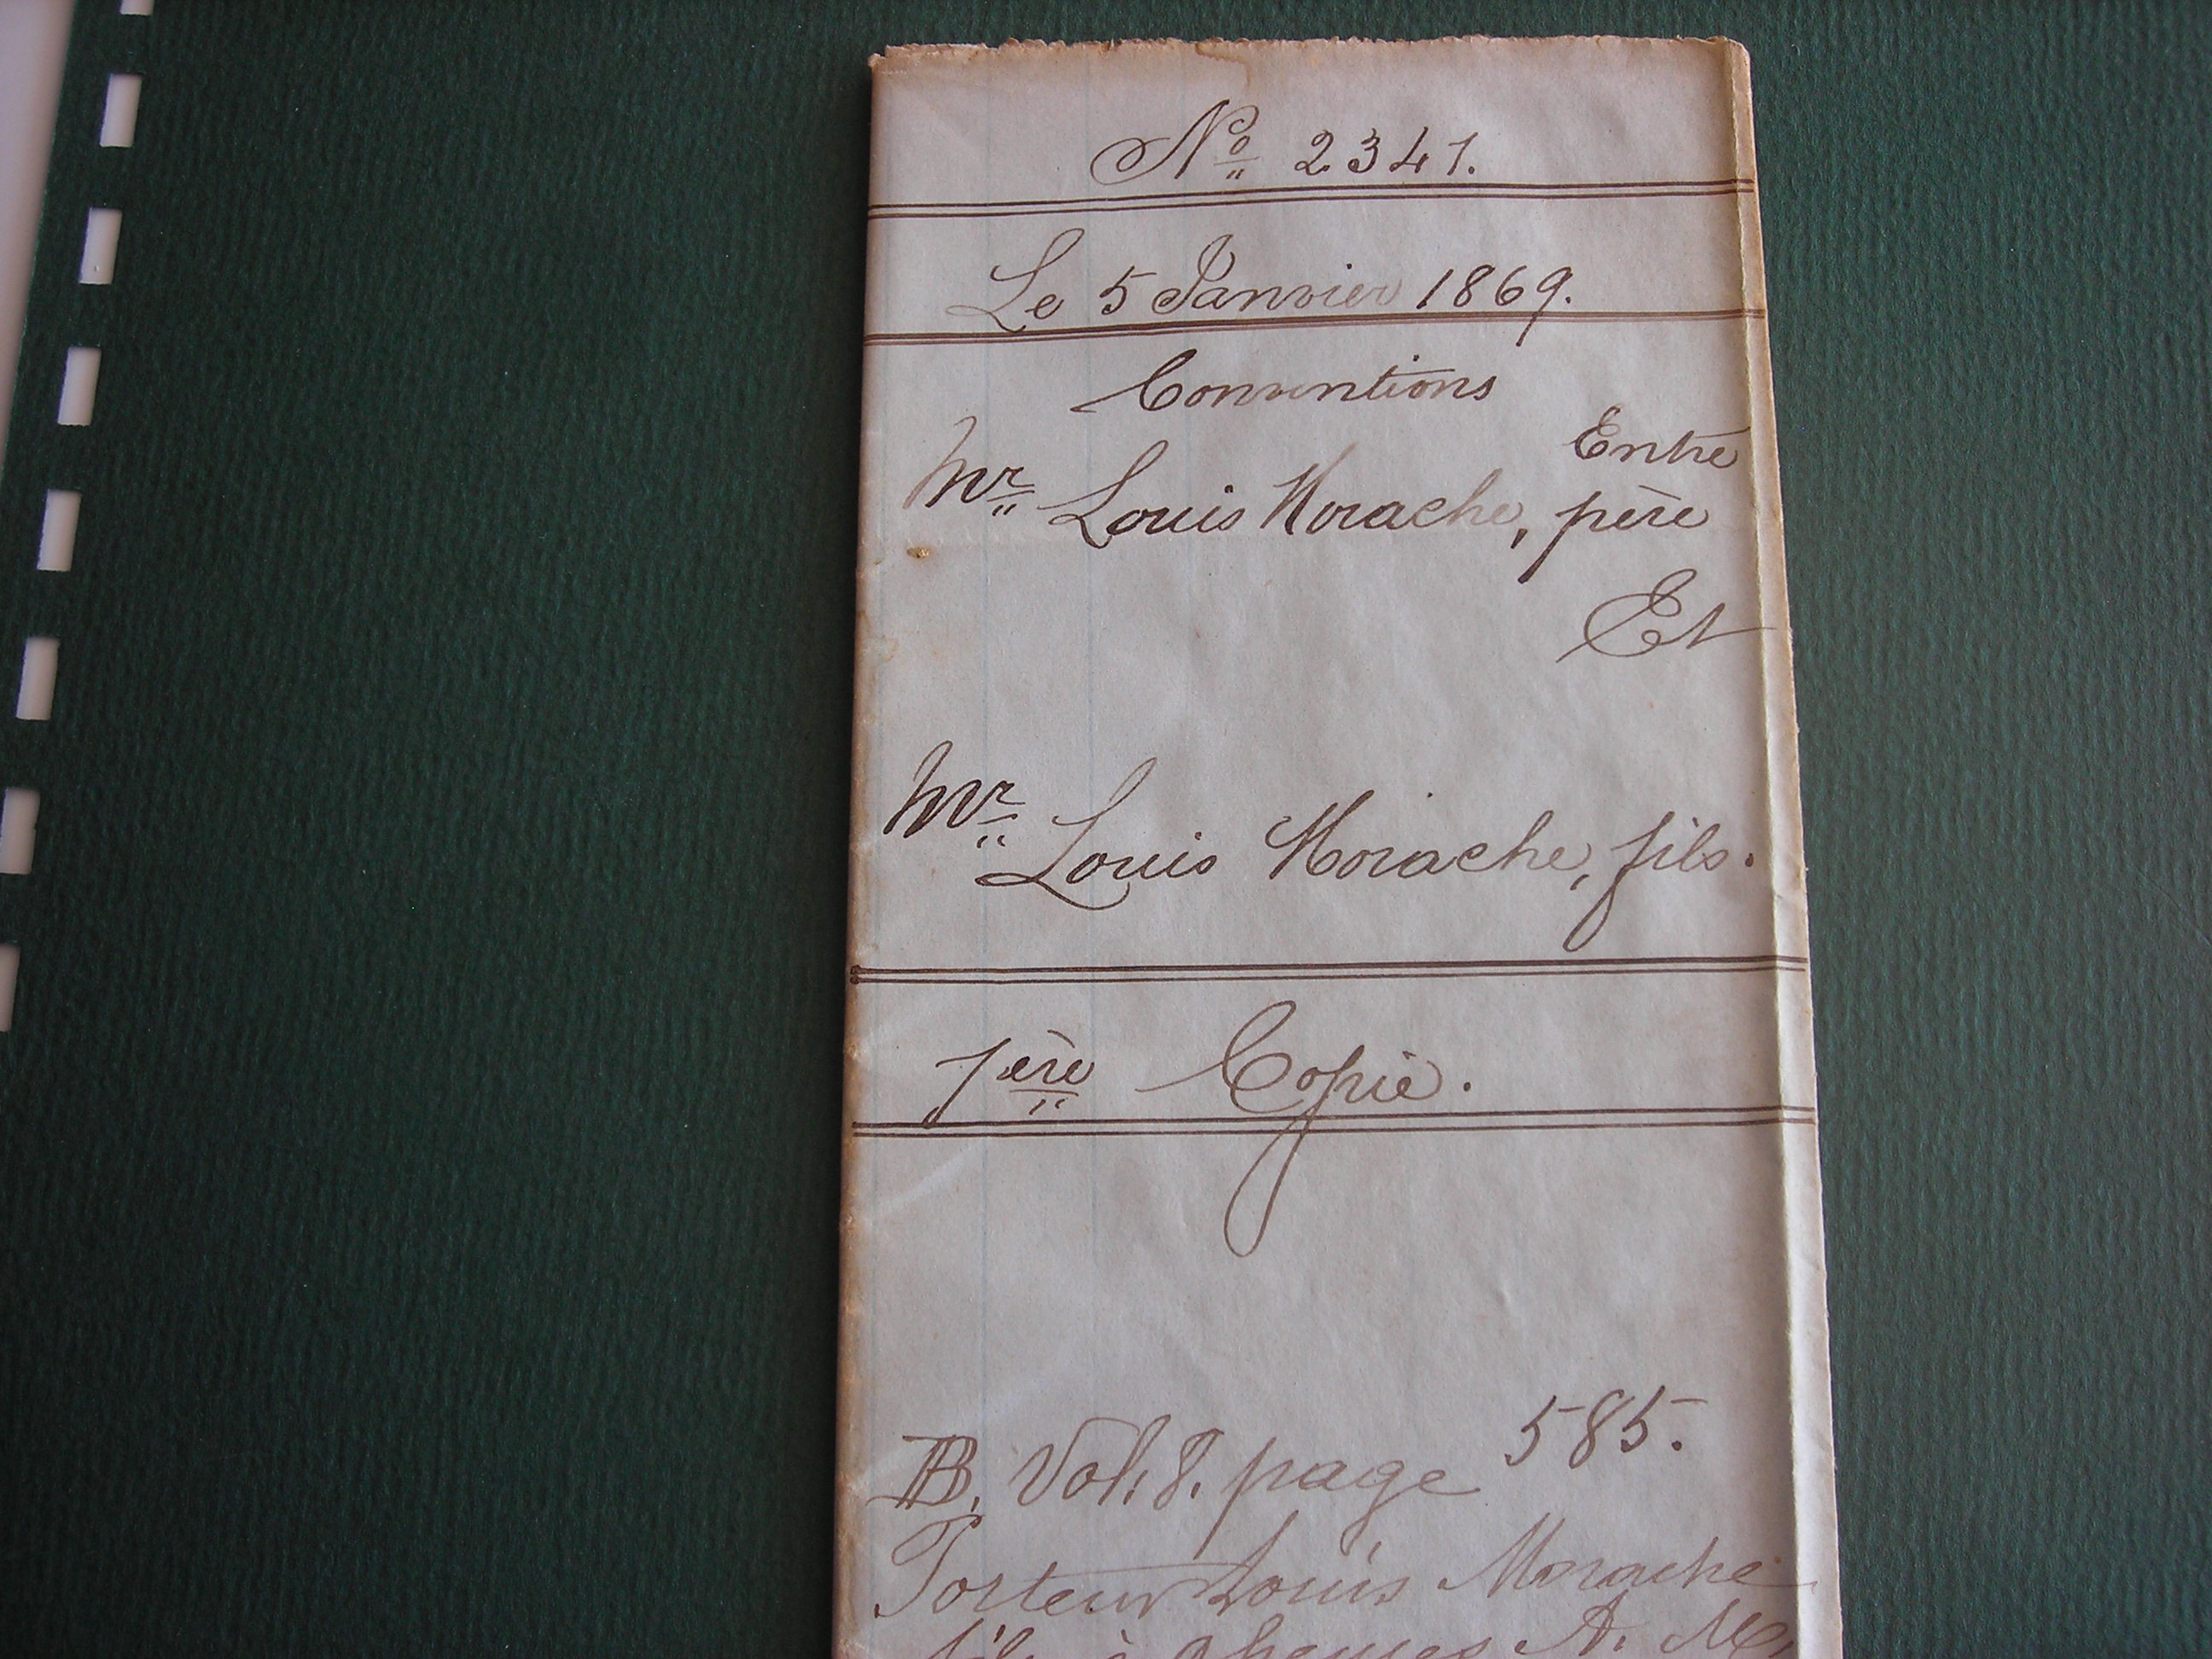 No 2341.
Le 5 Janvier 1869.
Conventions
Entre
Mr Louis Morache, père
Et
Mr Louis Morache, fils.
1ère Copie.
B. Vol. 8. page 585.
Porteur Louis Morache
fils à 9 heures A. M.